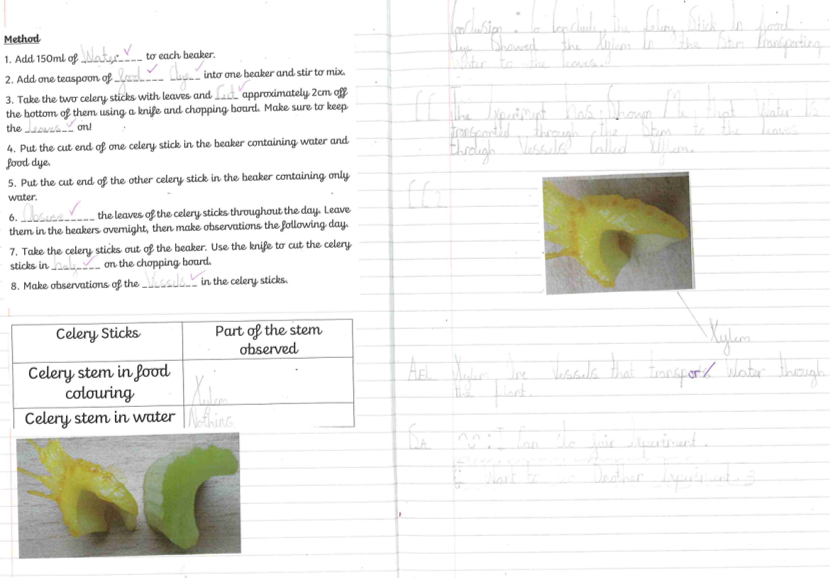 Method
1. Add 150ml of Water to each beaker.
2. Add one teaspoon of food Dye into one beaker and stir to mix.
3. Take the two celery sticks with leaves and Cut approximately 2cm off
the bottom of them using a knife and chopping board. Make sure to keep
the leaves on!
4. Put the cut end of one celery stick in the beaker containing water and
food dye.
5. Put the cut end of the other celery stick in the beaker containing only
water.
6. Observe the leaves of the celery sticks throughout the day. Leave
them in the beakers overnight, then make observations the following day.
7. Take the celery sticks out of the beaker. Use the knife to cut the celery
sticks in half on the chopping board.
8. Make observations of the Vessels in the celery sticks.
Celery Sticks
Part of the stem
observed
Celery stem in food
colouring
Xylem
Celery stem in water
Nothing
Conclusion: To conclude, the Celery Stick in food
Dye Showed the Xylem in the Stem transporting
water to the leaves.
The experiment has Shown Me that Water is
transported through the Stem to the leaves
through Vessels Called Xylem.
Xylem
AFL Xylem are Vessels that transport Water through
the plant.
SA I Can do fair experiment.
I Want to Do other experiment.